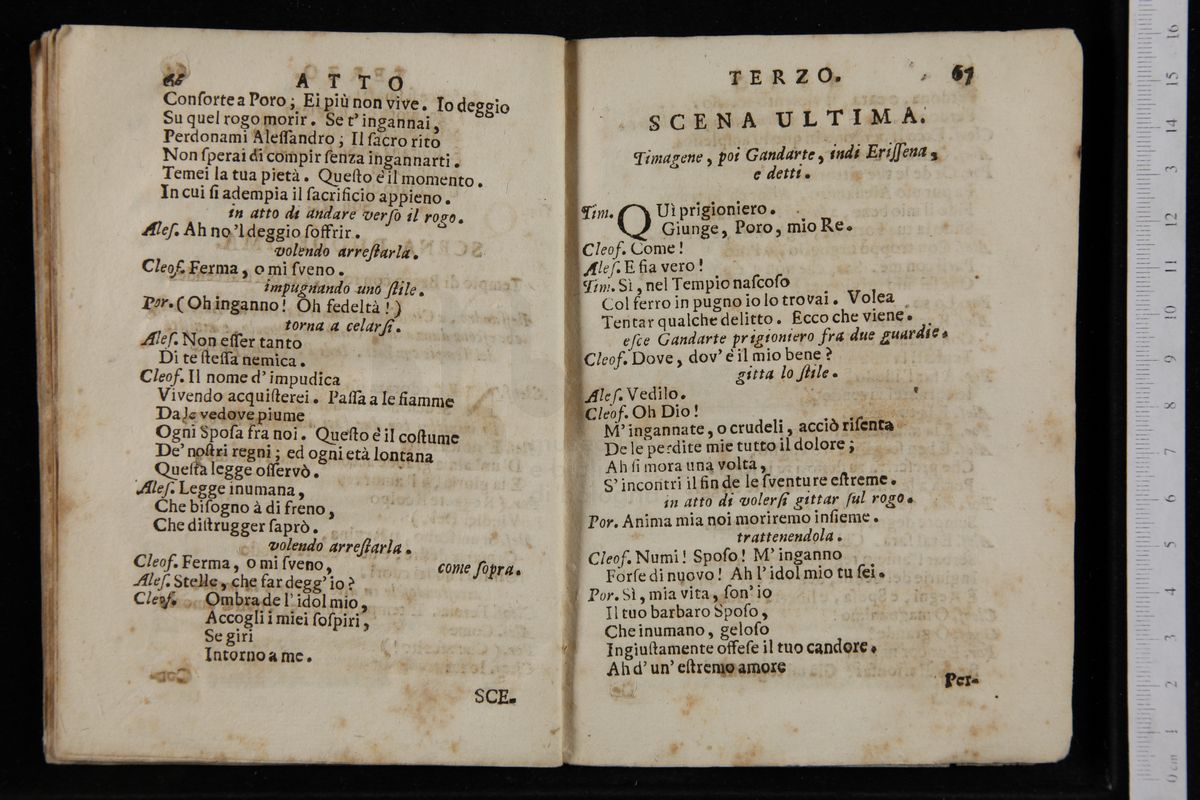 66 ATTO
Conſorte a Poro; Ei più non vive. Io deggio
Su quel rogo morir. Se t'ingannai,
Perdonami Aleſſandro; Il ſacro rito
Non ſperai di compir ſenza ingannarti.
Temei la tua pietà. Queſto è il momento.
In cui ſi adempia il ſacrificio appieno.
in atto di andare verſo il rogo.
Aleſ. Ah no 'l deggio ſoffrir.
volendo arreſtarla.
Cleof. Ferma, o mi ſveno.
impugnando uno ſtile.
Por. (Oh inganno! Oh fedeltà!)
torna a celarſi.
Aleſ. Non eſſer tanto
Di te ſteſſa nemica.
Cleof. Il nome d'impudica
Vivendo acquiſterei. Paſſa a le fiamme
Da le vedove piume
Ogni Spoſa fra noi. Queſto è il coſtume
De' noſtri regni; ed ogni età lontana
Queſta legge oſſervò.
Aleſ. Legge inumana,
Che biſogno à di freno,
Che diſtrugger ſaprò.
volendo arreſtarla.
Cleof. Ferma, o mi ſveno, come ſopra.
Aleſ. Stelle, che far degg' io?
Cleof. Ombra de l' idol mio,
Accogli i miei ſoſpiri,
Se giri
Intorno a me.
SCE-
TERZO. 67
SCENA ULTIMA.
Timagene, poi Gandarte, indi Eriſſena,
e detti.
Tim. QUì prigioniero.
Giunge, Poro, mio Re.
Cleof. Come!
Aleſ. E fia vero!
Tim. Sì, nel Tempio naſcoſo
Col ferro in pugno io lo trovai. Volea
Tentar qualche delitto. Ecco che viene.
eſce Gandarte prigioniero fra due guardie.
Cleof. Dove, dov' è il mio bene?
gitta lo ſtile.
Aleſ. Vedilo.
Cleof. Oh Dio!
M'ingannate, o crudeli, acciò riſenta
De le perdite mie tutto il dolore;
Ah ſi mora una volta,
S' incontri il fin de le ſventure eſtreme.
in atto di volerſi gittar ſul rogo.
Por. Anima mia noi moriremo inſieme.
trattenendola.
Cleof. Numi! Spoſo! M'inganno
Forſe di nuovo! Ah l'idol mio tu ſei.
Por. Sì, mia vita, ſon' io
Il tuo barbaro Spoſo,
Che inumano, geloſo
Ingiuſtamente offeſe il tuo candore.
Ah d' un' eſtremo amore
Per-
16
15
14
13
12
11
10
9
8
7
6
5
4
3
2
1
0 cm